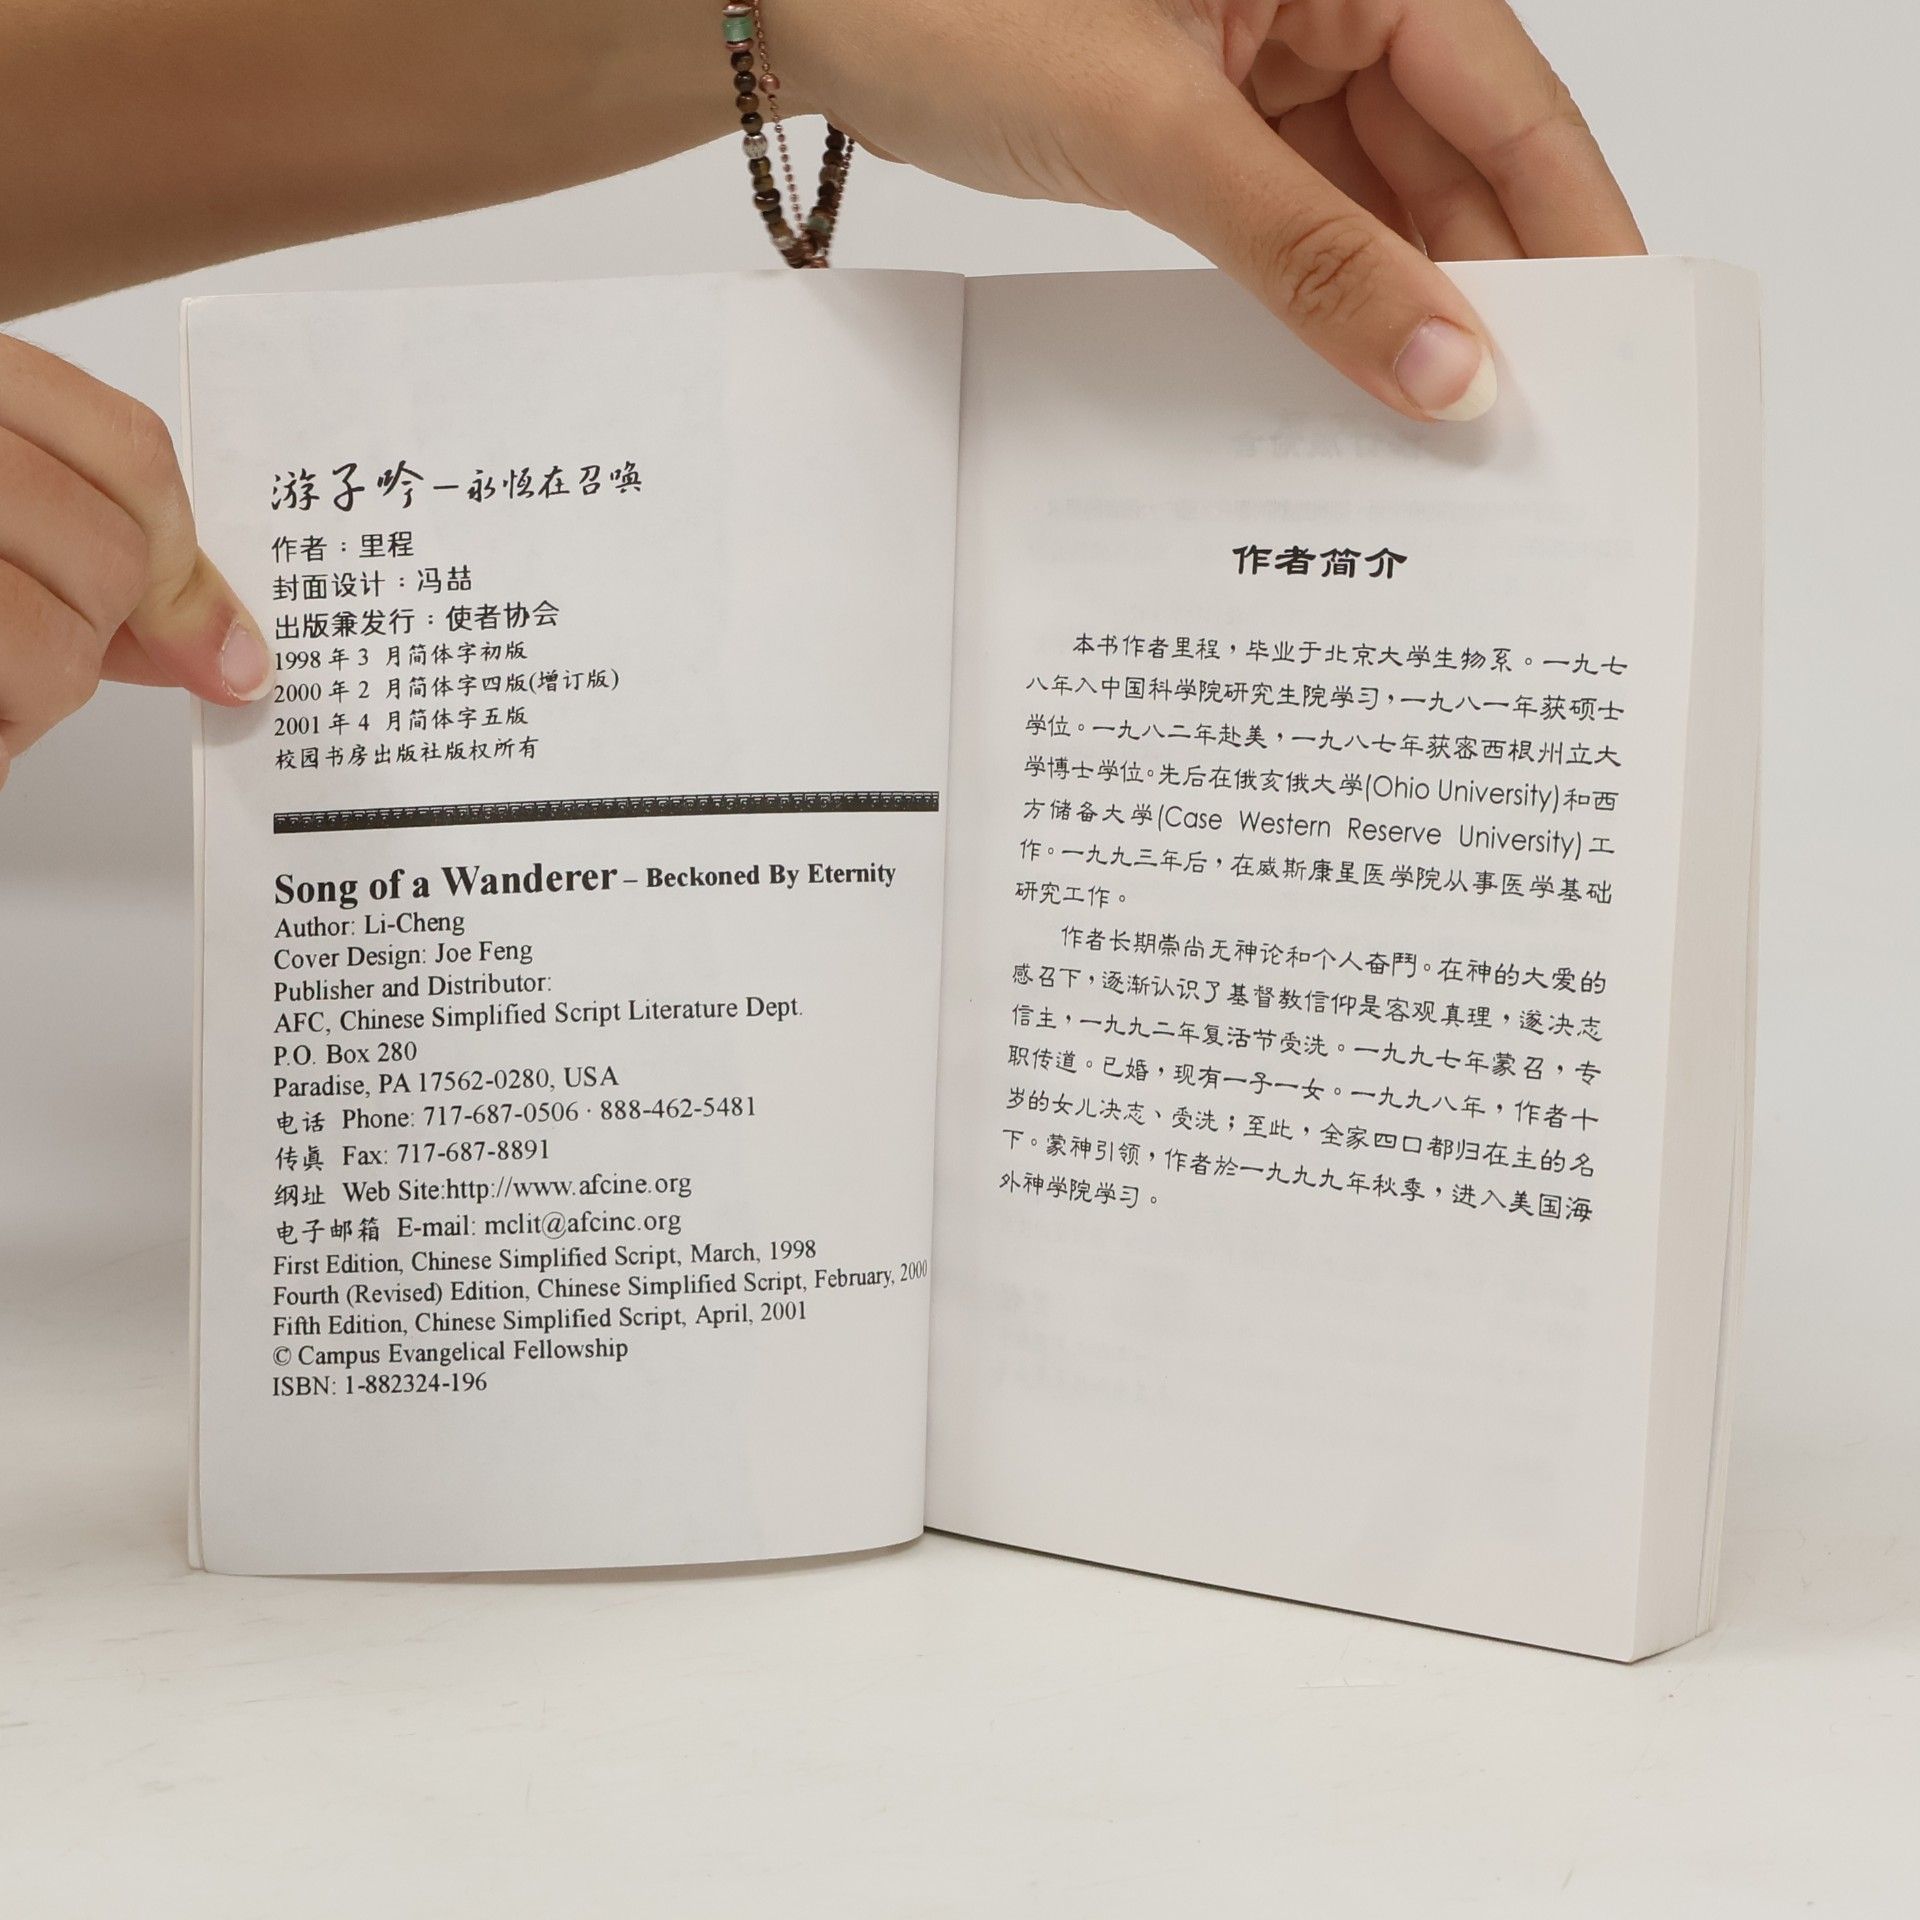 游子吟—永恆在召唤
作者：里程
封面设计：冯喆
出版兼发行：使者协会
1998 年 3 月简体字初版
2000 年 2 月简体字四版(增订版)
2001 年 4 月简体字五版
校园书房出版社版权所有
Song of a Wanderer – Beckoned By Eternity
Author: Li-Cheng
Cover Design: Joe Feng
Publisher and Distributor:
AFC, Chinese Simplified Script Literature Dept.
P.O. Box 280
Paradise, PA 17562-0280, USA
电话 Phone: 717-687-0506 · 888-462-5481
传真 Fax: 717-687-8891
纲址 Web Site:http://www.afcinc.org
电子邮箱 E-mail: mclit@afcinc.org
First Edition, Chinese Simplified Script, March, 1998
Fourth (Revised) Edition, Chinese Simplified Script, February, 2000
Fifth Edition, Chinese Simplified Script, April, 2001
© Campus Evangelical Fellowship
ISBN: 1-882324-196
作者简介
本书作者里程，毕业于北京大学生物系。一九七
八年入中国科学院研究生院学习，一九八一年获硕士
学位。一九八二年赴美，一九八七年获密西根州立大
学博士学位。先后在俄亥俄大学(Ohio University)和西
方储备大学(Case Western Reserve University)工
作。一九九三年后，在威斯康星医学院从事医学基础
研究工作。
作者长期崇尚无神论和个人奋鬥。在神的大爱的
感召下，逐渐认识了基督教信仰是客观真理，遂决志
信主，一九九二年复活节受洗。一九九七年蒙召，专
职传道。已婚，现有一子一女。一九九八年，作者十
岁的女儿决志、受洗；至此，全家四口都归在主的名
下。蒙神引领，作者於一九九九年秋季，进入美国海
外神学院学习。